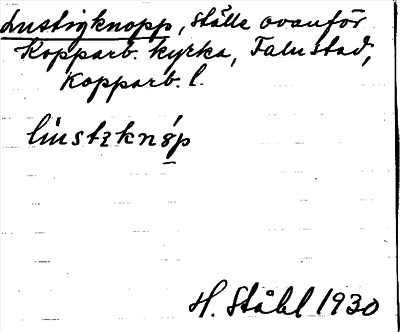 Lustigknopp, ställe ovanför
Kopparb. kyrka, Falu stad,
Kopparb. l.
lústzknǿp
H. Ståhl 1930